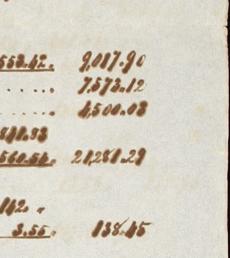 553.42. 9,017.90
..... 7,573.12
..... 4,500.03
841.83
560.54. 21,281.29
142. "
3.55. 138.45